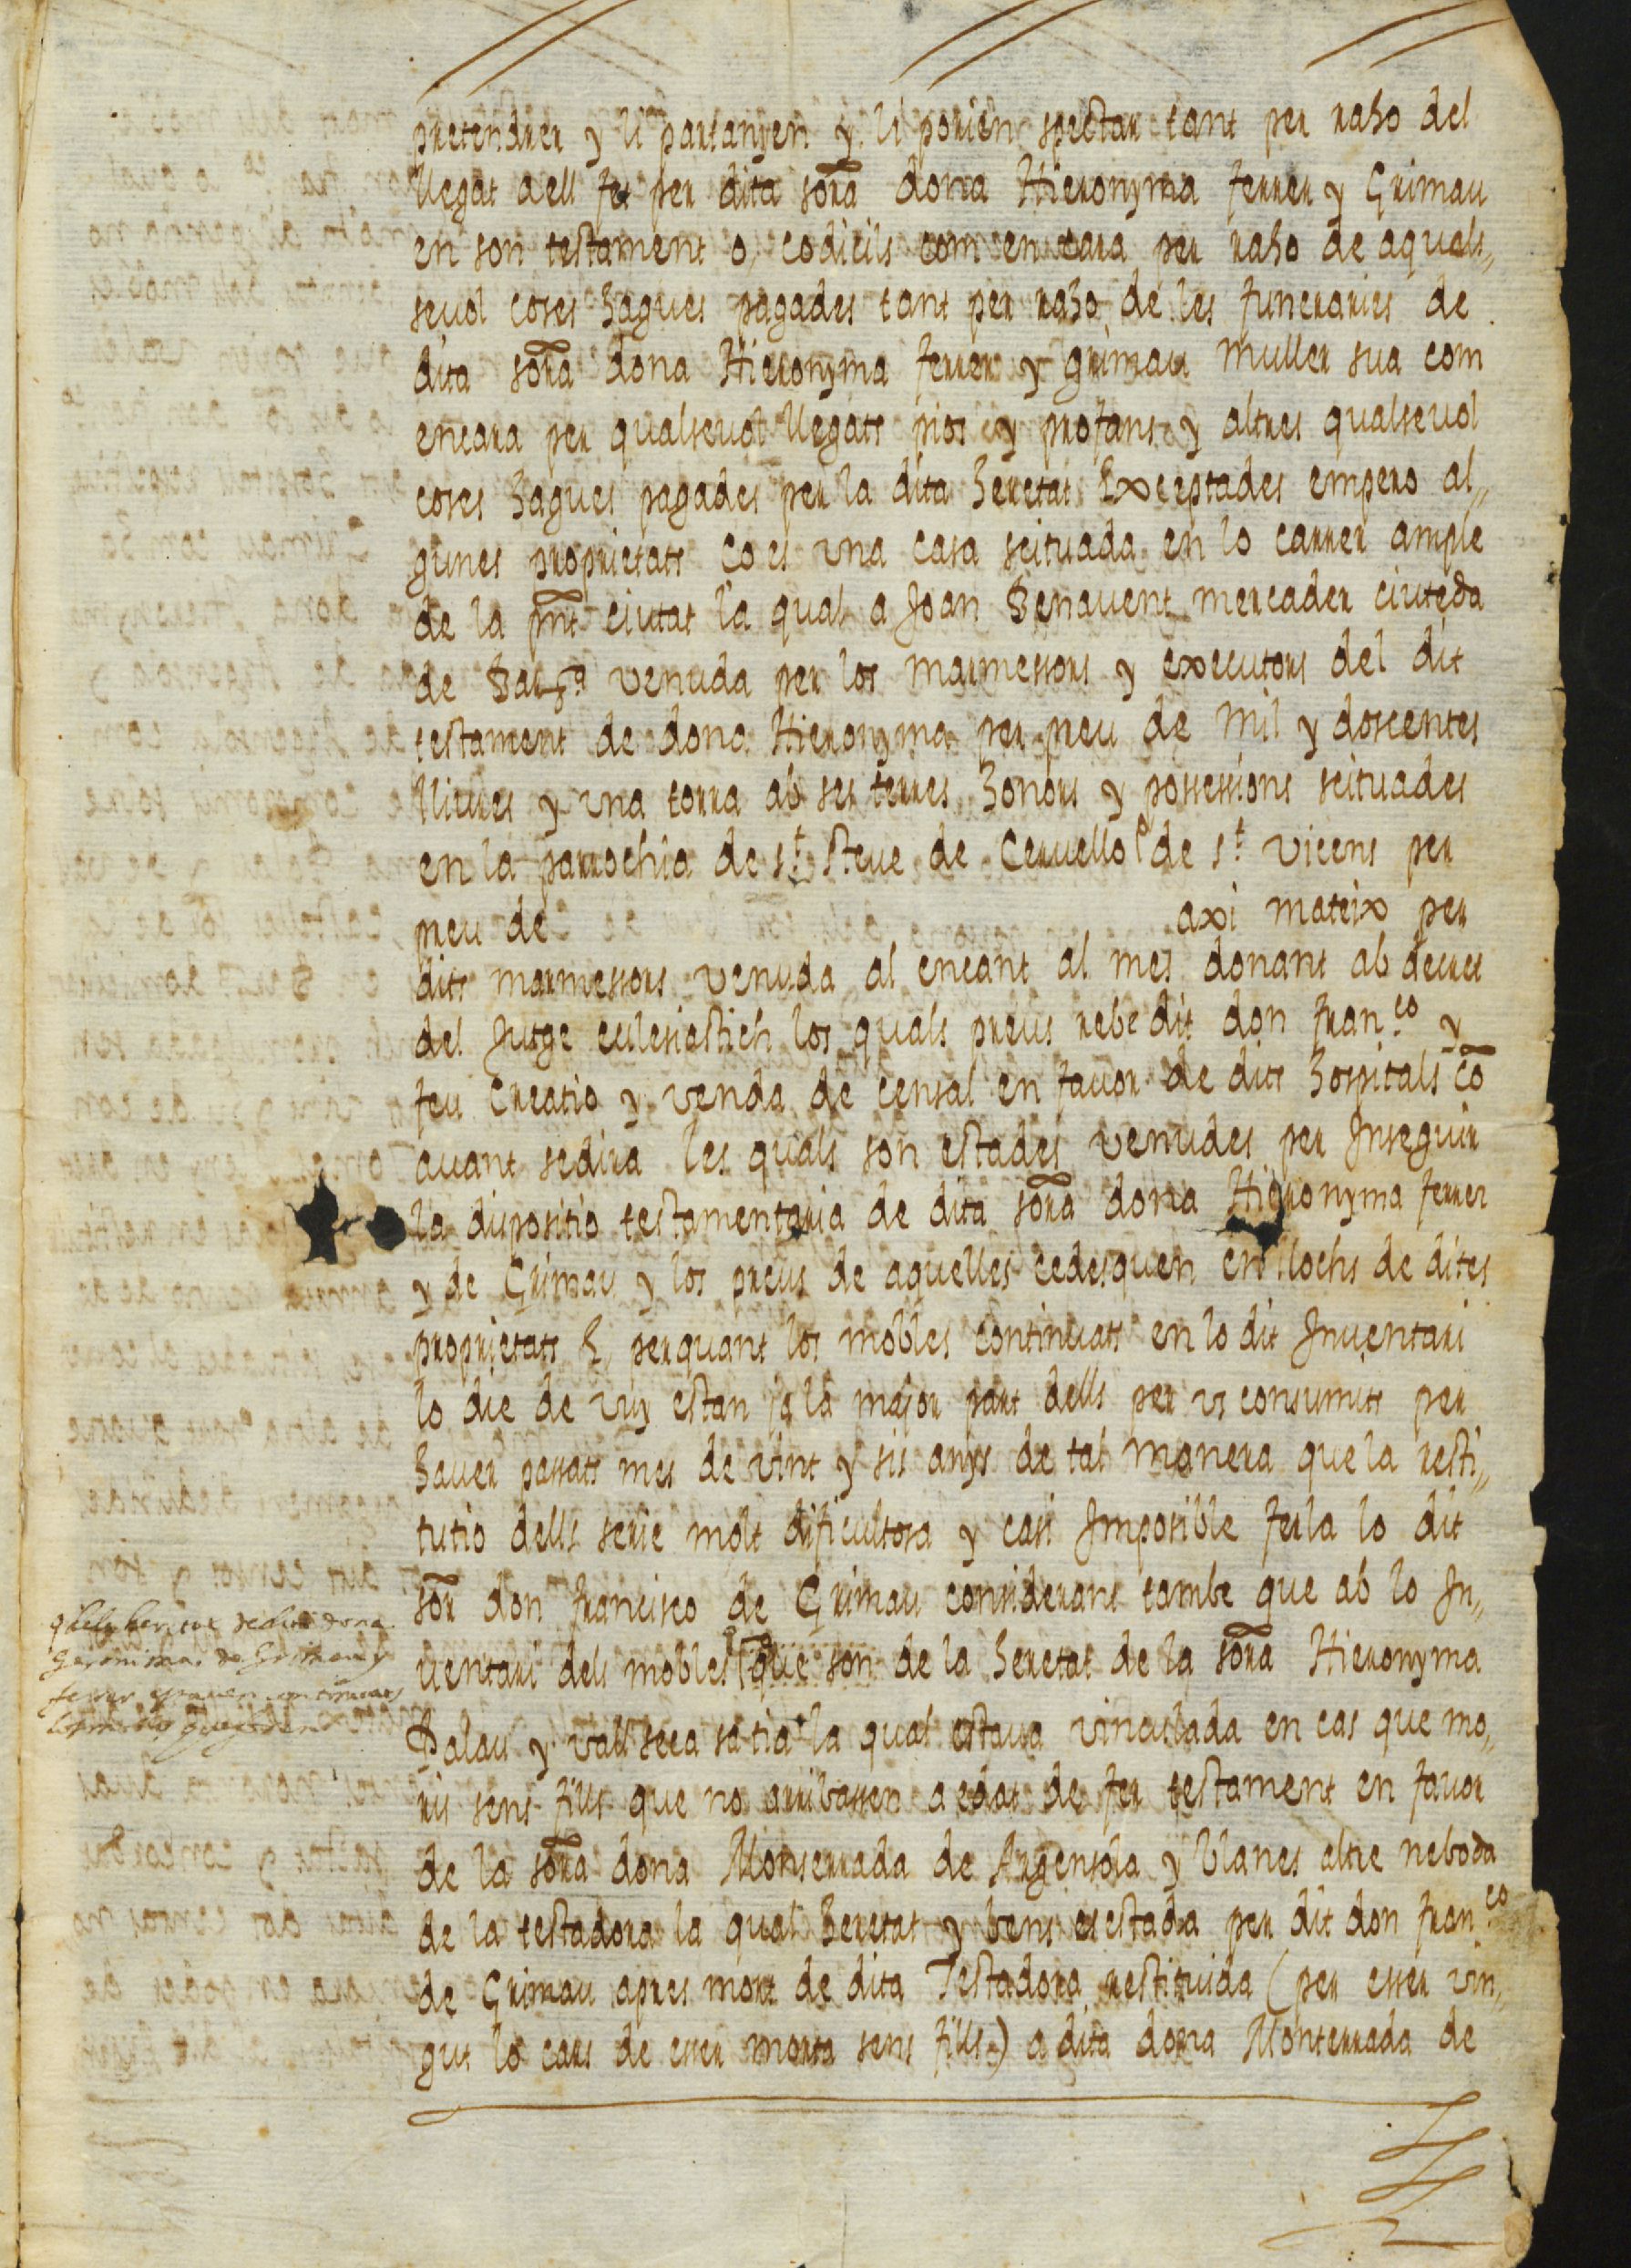 pretendrer y li partanyen y li porien spectar tant per raho del
llegat aell fet per dita sora dona Hieronyma ferrer y Grimau
en son testament o codicils com encara per raho de aquals,,
seuol coses hagues pagades tant per raho de les funeraries de
dita sora dona Hieronyma ferrer y grimau muller sua com
encara per qualseuol llegats pios y profans y altres qualseuol
coses hagues pagades per la dita heretat Exceptades empero al,,
gunes proprietats ço es vna casa scituada en lo carrer ample
de la pnt ciutat la qual a Joan Benauent mercader ciuteda
de Barna venuda per los marmessors y executors del dit
testament de dona Hieronyma per preu de mil y doscentes
lliures y vna torra ab ses terres honors y possessions scituades
en la parrochia de st. steue de Ceruello de st. vicens per
preu de axi mateix per
dits marmessors venuda al encant al mes donant ab decret
del Jutge eclesiastich los quals preus rebe dit don franco. y
feu Creatio y venda de censal en fauor de dits hospitals co
auant sedira les quals son estades venudes per Inseguir
la dispositio testamentaria de dita sora dona Hieronyma ferrer
y de Grimau y los preus de aquelles cedesquen en llochs de dites
proprietats E perquant los mobles continuats en lo dit Inuentari
lo die de vuy estan ja la major part dells per vs consumits per
hauer passats mes de vint y sis anys de tal manera que la resti,,
tutio dells serie molt dificultosa y casi Imposible ferla lo dit
sor don francisco de Grimau considerant tambe que ab lo In,,
uentari dels mobles que son de la heretat de la sora Hieronyma
dona
Palau y vallseca sa tia la qual estaua vinculada en cas que mo,,
ris sens fills que no arribassen a edat de fer testament en fauor
de la sora dona Monserrada de Argensola y blanes altre neboda
de la testadora la qual heretat y bens es estada per dit don franco.
de Grimau apres mort de dita Testadora restituida (per esser vin,,
gut lo cars de esser morta sens fills) a dita dona Monserrada de